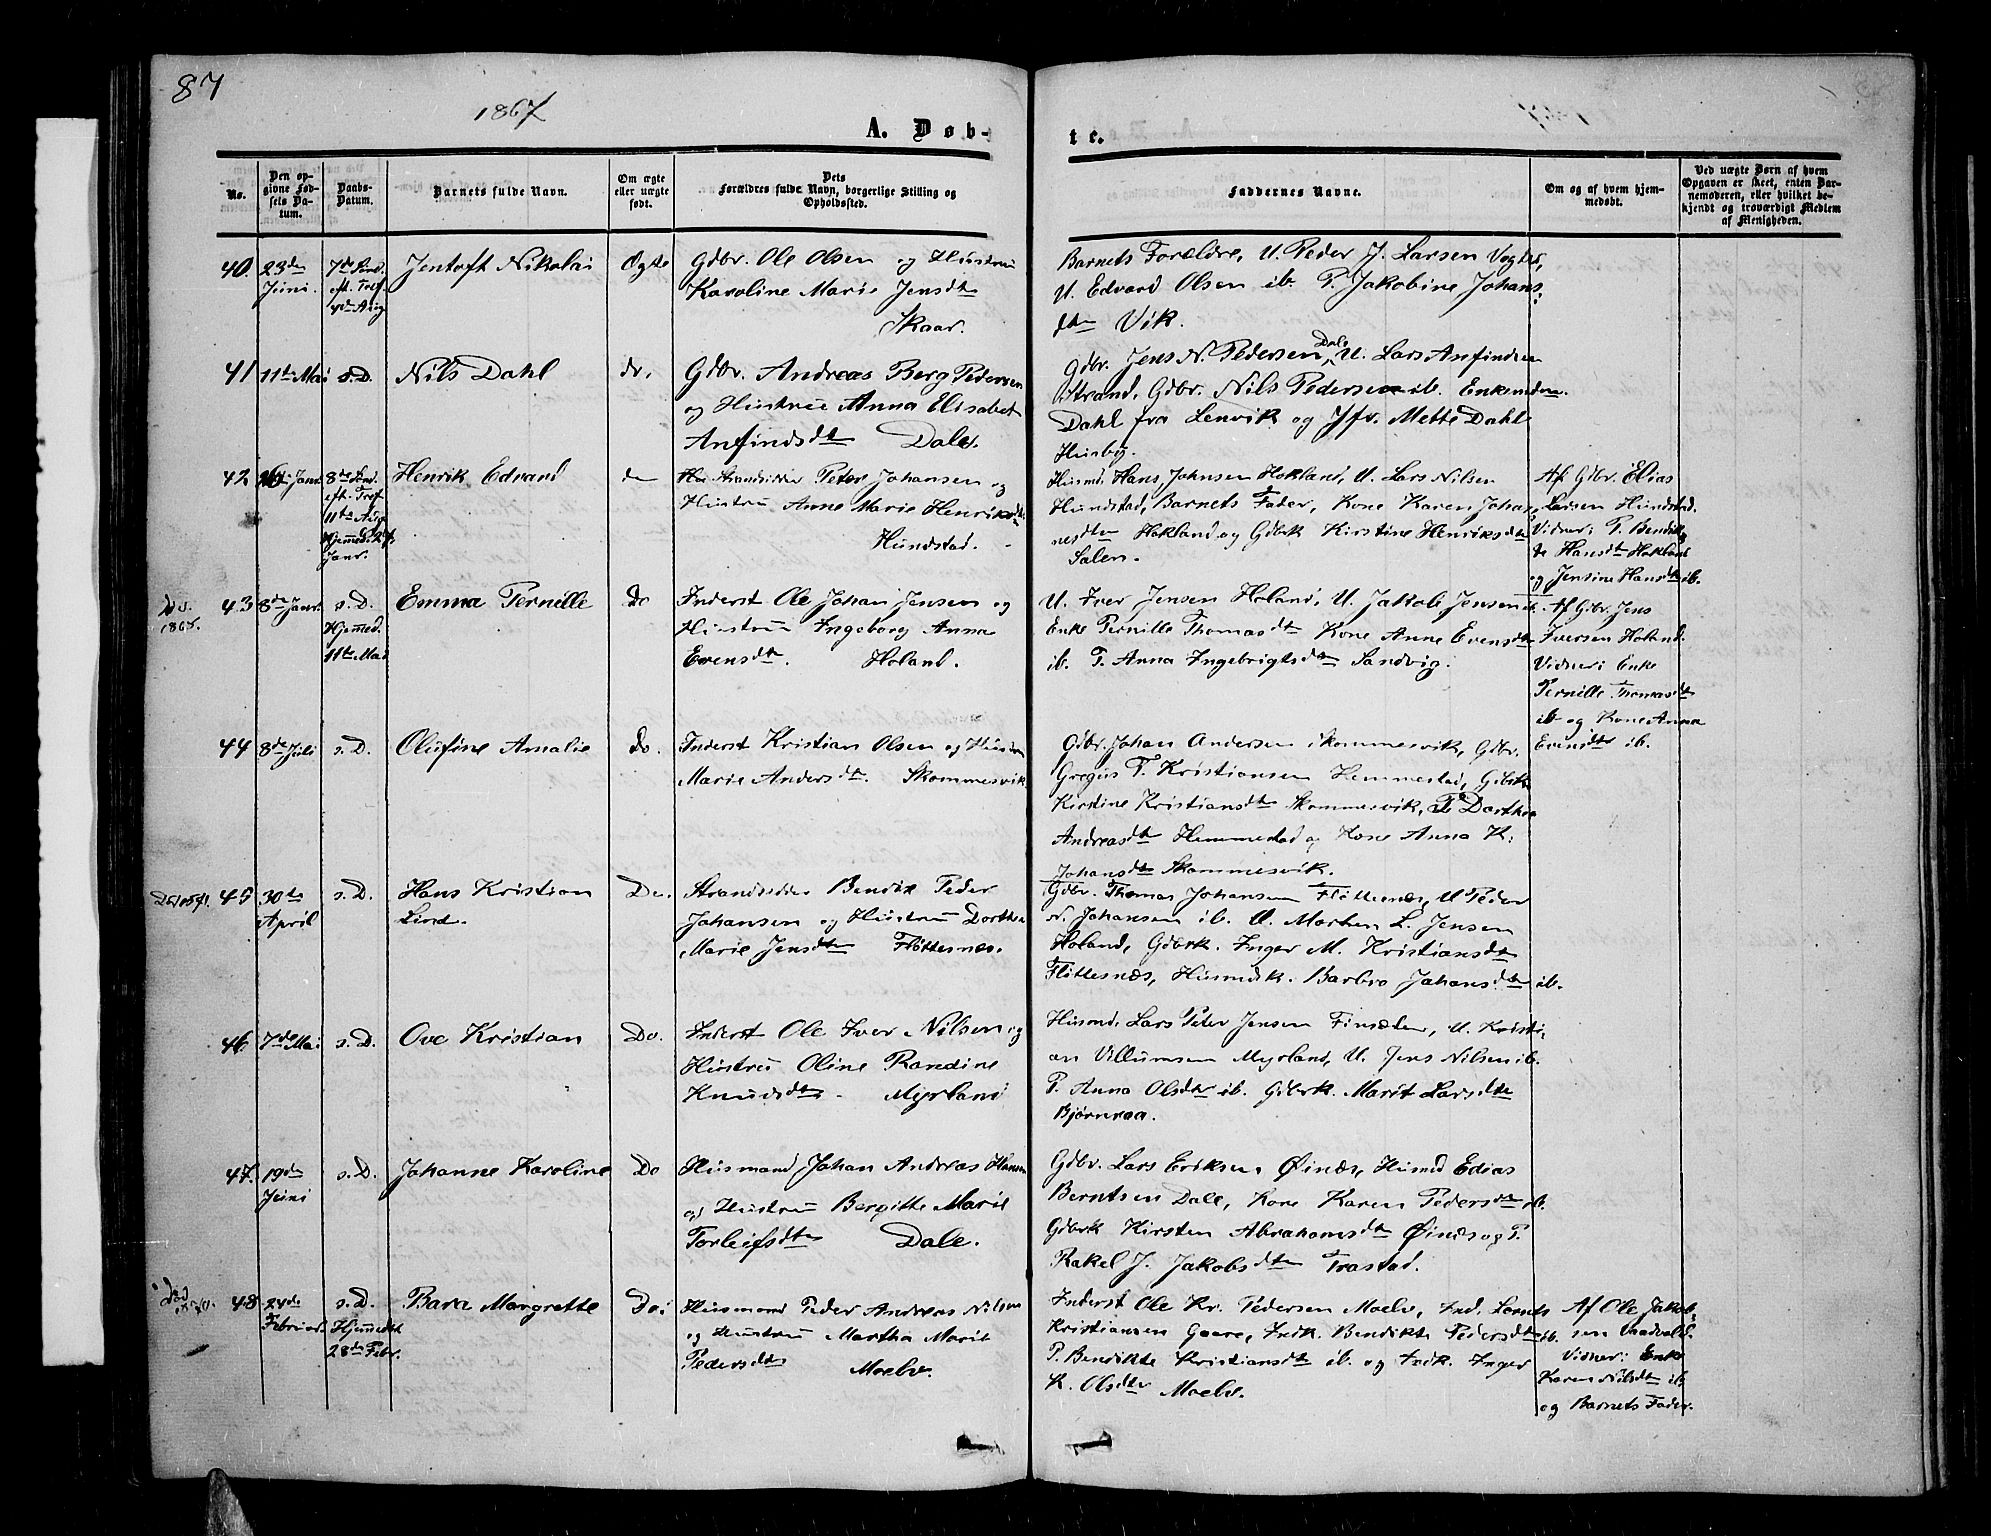 87
1867
A. Døb-
te.
No.
Den opgivne Fødsels Datum.
Daabs-Datum.
Barnets fulde Navn.
Om ægte eller uægte født.
Dets Forældres fulde Navn, borgerlige Stilling og Opholdssted.
Faddernes Navne.
Om og af hvem hjemmedøbt.
Ved uægte Børn af hvem Opgaven er skeet, enten Barnemoderen, eller hvilket bekjendt og troværdigt Medlem af Menigheden.
40. 23de Juni. 7de Sønd. eft. Tref. 4de Aug.
Jentoft Nikolai
Ægte
Gdbr. Ole Olsen og Hustru
Karoline Marie Jensdtr
Skaar.
Barnets Forældre, U. Peder J. Larsen
U. Edvard Olsen ib. P. Jakobine Johans-
dtr Vik.
41 11te Mai s.D. Nils Dahl
do.
Gdbr. Andreas Berg Pedersen
og Hustru Anna Elisabet
Anfindsdtr Dale.
Gdbr. Jens N. Pedersen Dale, U. Lars Anfindsen
Strand, Gdbr. Nils Pedersen ib. Enkemden
Dahl fra Lenvik og Jfr. Mette Dahl
Husby.
42 Janr. 8de Sønd. eft. Tref. 11te Aug. Hjemmed. Janr.
Henrik Edvard
do
Strandsidder Peter Johansen og
Hustru Anne Marie Henriksdtr
Hundstad.
Husmd. Hans Johnsen Hokland, U. Lars Nilsen
Hundstad, Barnets Fader, Kone Karen Johan-
nesdtr Hokland og Gdbrk Kirstine Henriksdtr
Salen.
Af Gdbr. Elias
Larsen Hundstad.
Vidner: P. Bendik-
te Hansdtr Hokland
og Jensine Hansdtr ib.
43 8de Janr. s.D. Hjemmed. 11te Mai
Emma Pernille
Do
Inderst Ole Johan Jensen og
Hustru Ingeborg Anna
Evensdtr. Holand.
U. Iver Jensen Holand, U. Jakob Jensen ib.
Enke Pernille Thomasdtr Kone Anne Evensdtr
ib. P. Anna Ingebrigtsdtr Sandvig.
Af Gdbr. Jens
Iversen Holand.
Vidner: Enke
Pernille Thomasdtr
ib og Kone Anna
Evensdtr ib.
44 8de Juli s.D. Olufine Amalie
Do.
Inderst Kristian Olsen og Hustru
Marie Andersdtr. Skommesvik
Gdbr. Johan Andersen Skommesvik, Gdbr.
Gregus T. Kristiansen Hemmestad, Gdbrk
Kirstine Kristiansdtr Skommesvik, P. Dorthea
Andreasdtr Hemmestad og Kone Anna K.
Johansdtr Skommesvik.
45 30te April s.D. Hans Kristian
Lind.
Do.
Strandsidder Bendik Peder
Johansen og Hustru Dorthea
Marie Jensdtr Fløttesnæs.
Gdbr. Thomas Johansen Flöttesnæs, U Peder
N. Johansen ib. U. Morten L. Jensen
Holand, Gdbrk. Inger M. Kristiansdtr
Flöttesnæs, Husmdk. Barbro Johansdtr ib.
46 7de Mai s.D. Ove Kristian
Do.
Inderst Ole Iver Nilsen og
Hustru Oline Randine
Knudsdtr. Myrland
Husmd. Lars Peter Jensen Finsæter, U. Kristi-
an Villumsen Myrland, U. Jens Nilsen ib.
P. Anna Olsdtr ib. Gdbrk. Marit Larsdtr
Bjørnraa.
47. 19de Juni s.D. Johanne Karoline
Do
Husmand Johan Andreas Hansen
og Hustru Bergitte Marie
Torleifsdtr Dale.
Gdbr. Lars Eriksen Øinæs, Husmd Edias
Berntsen Dale, Kone Karen Pedersdtr ib.
Gdbrk Kirsten Abrahamsdtr Øinæs og P.
Rakel J. Jakobsdtr Trastad.
48 24de Februar. s.D. Hjemmedøbt 28de Febr.
Bara Margrethe
Do
Husmand Peder Andreas Nilsen
og Hustru Martha Marie
Pedersdtr Moelv.
Inderst Ole Kr. Pedersen Moelv, Ind. Lorents
Kristiansen Gaare, Indk. Bendikte Pedersdtr ib.
P. Bendikte Kristiansdtr ib. og Indk. Inger
K. Olsdtr Moelv.
Af Ole Jakob-
sen Vaadvold.
Vidner: Enke
Karen Nilsdtr ib
og Barnets Fader.